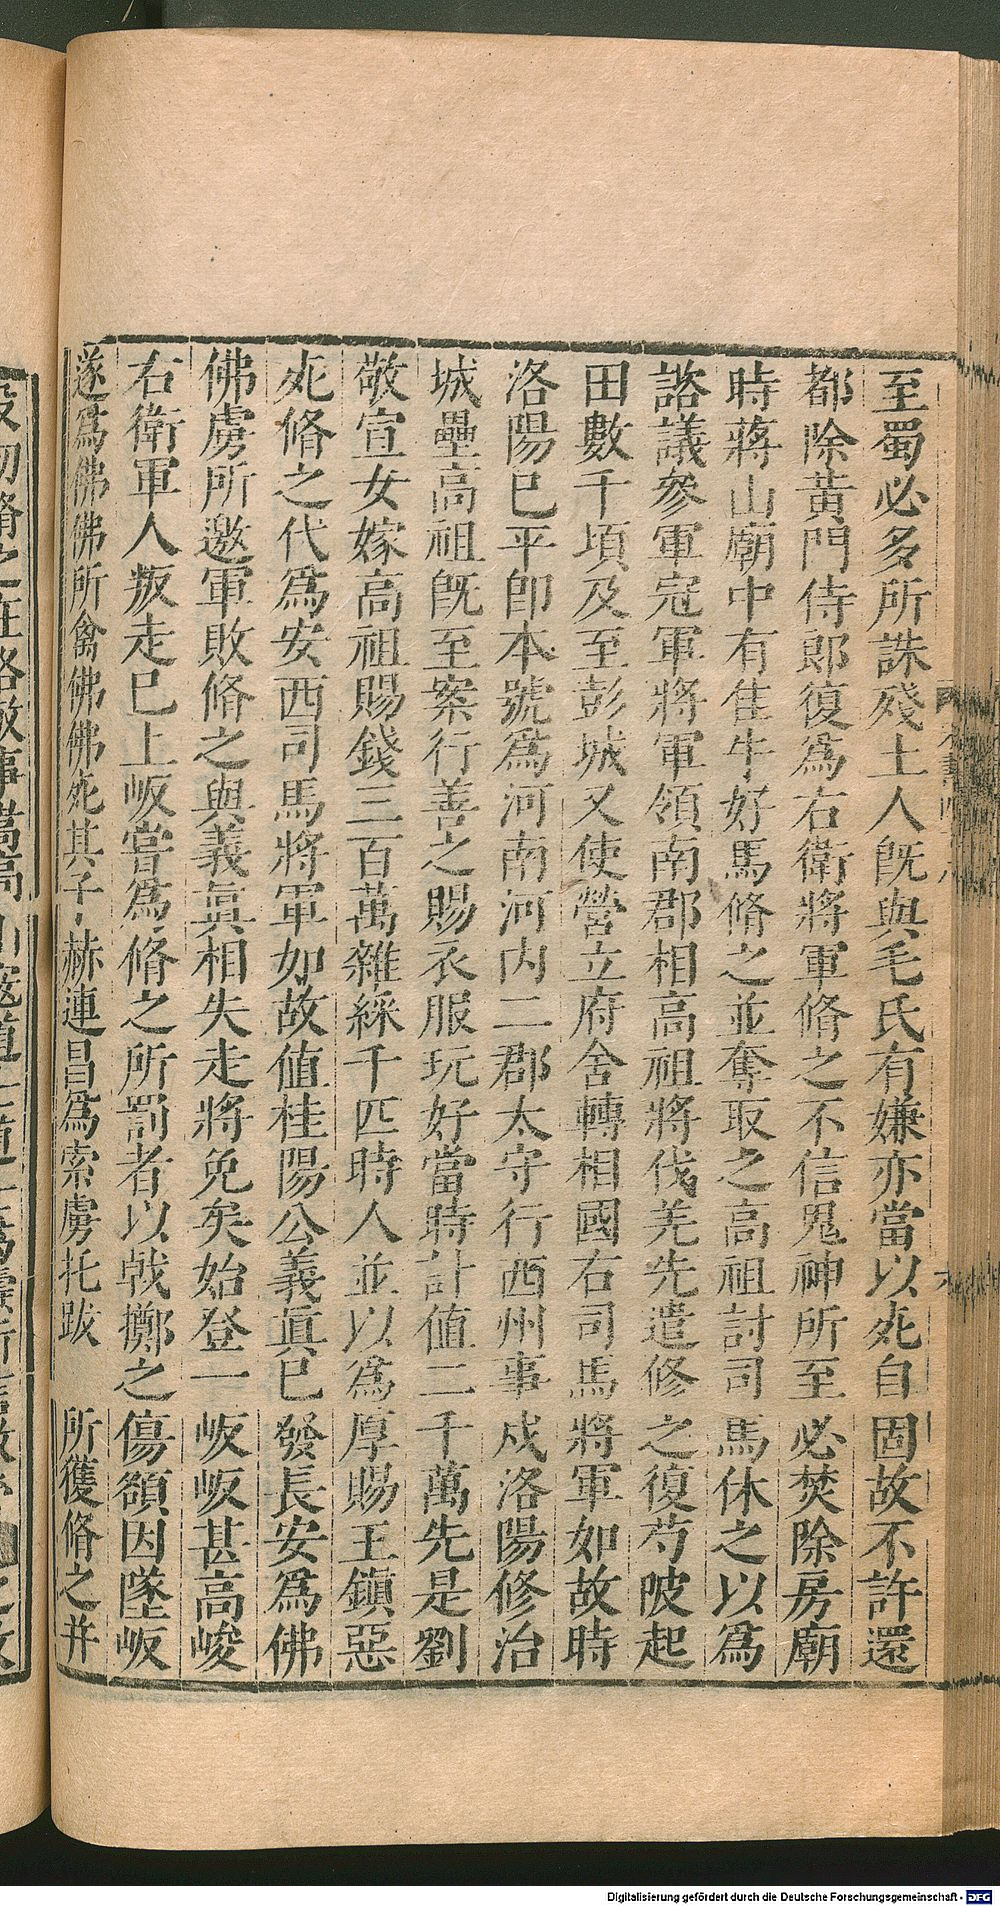 至蜀必多所誅殘土人旣與毛氏有嫌亦當以死自固故不許還
都除黃門侍郎復爲右衛將軍脩之不信鬼神所至必焚除房廟
時蔣山廟中有佳牛好馬脩之並奪取之高祖討司馬休之以爲
諮議參軍冠軍將軍領南郡相高祖將伐羌先遣修之復芍陂起
田數千頃及至彭城又使營立府舍轉相國右司馬將軍如故時
洛陽巳平卽本號爲河南河内二郡太守行西州事戍洛陽修治
城壘高祖旣至案行善之賜衣服玩好當時計值二千萬先是劉
敬宣女嫁高祖賜錢三百萬雜綵千匹時人並以爲厚賜王鎭惡
死脩之代爲安西司馬將軍如故值桂陽公義眞巳發長安爲佛
佛虜所邀軍敗脩之與義眞相失走將免矣始登一岅岅甚高峻
右衛軍人叛走巳上岅嘗爲脩之所罰者以戟擲之傷額因墜岅
遂爲佛佛所禽佛佛死其子赫連昌爲索虜托跋所獲脩之并
Digitalisierung gefördert durch die Deutsche Forschungsgemeinschaft - DFG